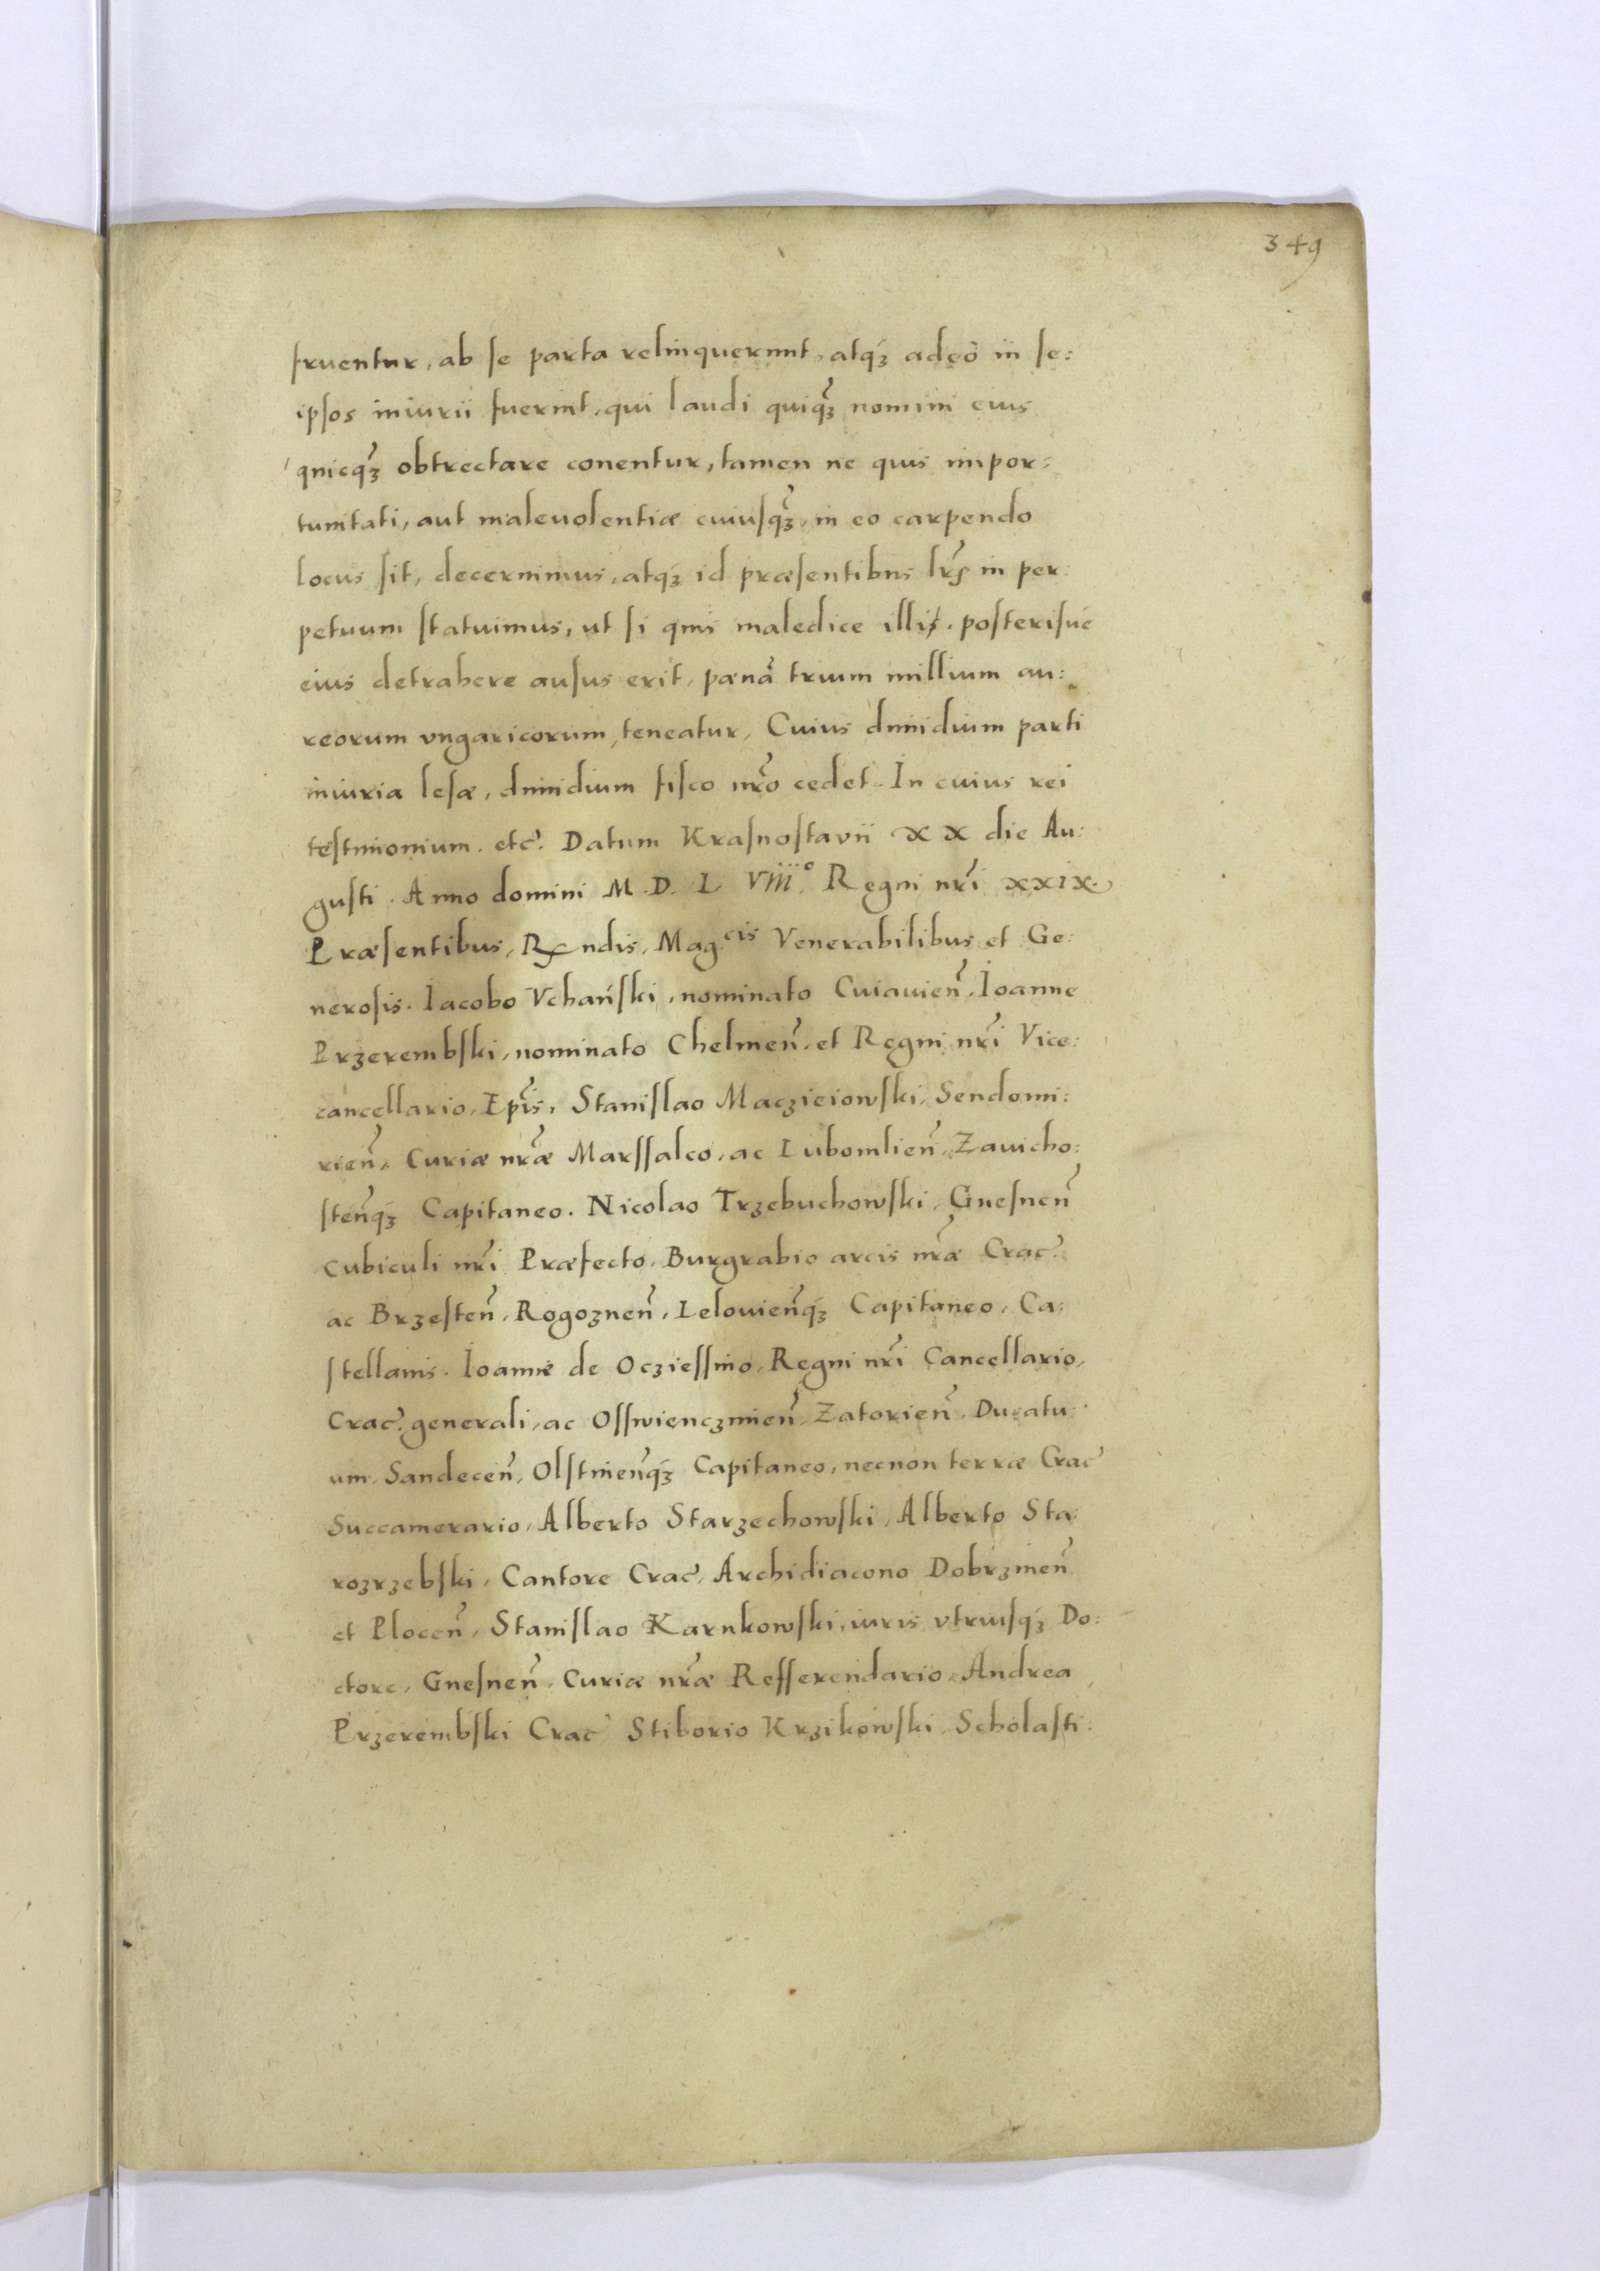 349
fruentur, ab se parta relinquerint, atq́ꝫ adeò in se:
ipsos iniurii fuerint, qui laudi quiqꝫ nomini eius
quicqꝫ obtrectare conentur, tamen ne quis impor:
tunitati, aut malevolentiæ cuiusqꝫ, in eo carpendo
locus sit, decernimus, atq́ꝫ id præsentibus lr̃s in per:
petuum statuimus, ut si quis maledice illi, posterisué
eius detrahere ausus erit, pœnã trium millium au:
reorum ungaricorum, teneatur, Cuius dimidium parti
iniuria lesæ, dimidium fisco nr̃o cedet. In cuius rei
testimonium. etc̃. Datum Krasnostavii XX die Au:
gusti. Anno domini M. D. L VIII° Regni nr̃i XXIX.
Præsentibus, Rndis, Mag.cis Venerabilibus et Ge:
nerosis. Iacobo Vchański, nominato Cuiauien̄. Ioanne
Przerembski, nominato Chelmen̄. et Regni nr̃i Vice:
cancellario, Ep̃is, Stanislao Maczieiowski, Sendomi:
rien̄, Curiæ nr̃æ Marssalco, ac Lubomlien̄, Zauicho:
sten̄q́ꝫ Capitaneo. Nicolao Trzebuchowski, Gnesnen̄
Cubiculi nr̃i Præfecto, Burgrabio arcis nr̃æ Crac̃.
ac Brzesten̄, Rogoznen̄, Lelouien̄q́ꝫ Capitaneo, Ca:
stellanis. Ioanne de Ocziessino, Regni nr̃i Cancellario,
Crac̃. generali, ac Osswienczimien̄, Zatorien̄. Ducatu:
um, Sandecen̄, Olstinen̄q́ꝫ Capitaneo, necnon terræ Crac̃
Succamerario, Alberto Starzechowski, Alberto Sta:
rozrzebski, Cantore Crac̃, Archidiacono Dobrzinen̄
et Plocen̄, Stanislao Karnkowski, iuris utriusq́ꝫ Do:
ctore, Gnesnen̄. Curiæ nr̃æ Refferendario, Andrea
Przerembski Crac̃ Stiborio Krzikowski, Scholasti: